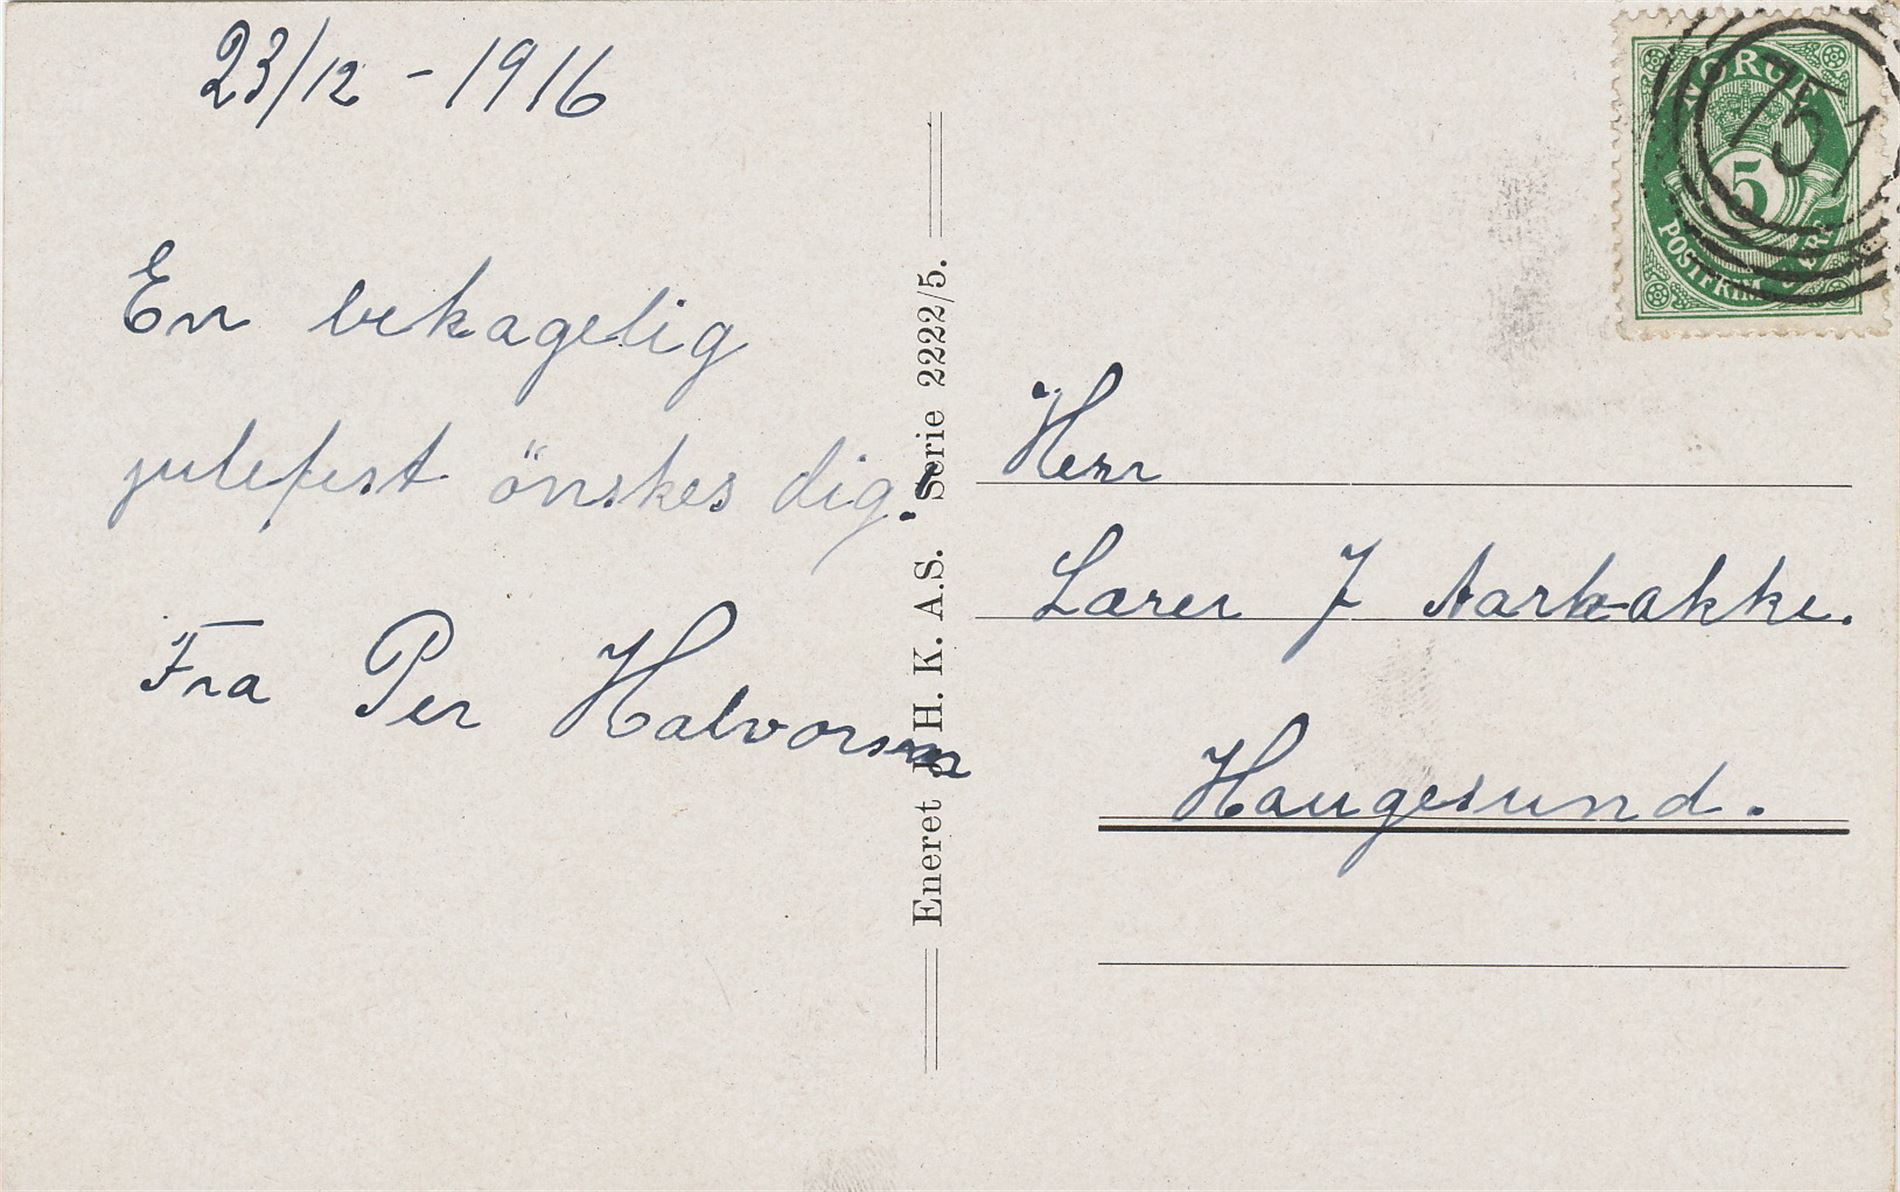 23/12 - 1916
En bekagelig
julefest önskes dig.
Fra Per Halvorsen
Eneret H. K. A.S. Serie 2222/5.
NORGE
5
POSTFRIM
751
Herr
Lærer J Aarbakke.
Haugesund.